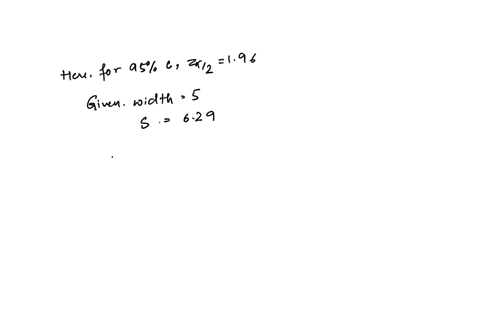 Here. for 95% c, zα/2 = 1.96
Given. width = 5
S .= 6.29